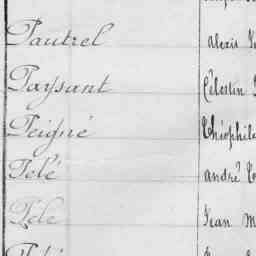 Pautrel Alexis
Paysant Célestin
Peigné Théophile
Pelé André
Pele Jean M